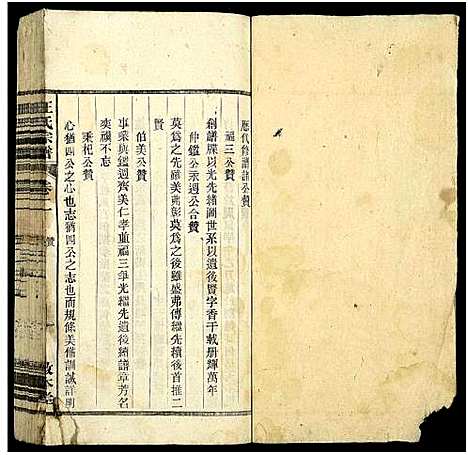 歷代修譜諸公贊
福三公贊
創譜牒以光先緒圖世系以遺後賢字香千載册輝萬年
仲鑑公汞週公合贊
莫為之先雖美弗彰莫為之後雖盛弗傳繼先績後首推二
賢
伯美公贊
事業與鑑週齊美仁孝重福三爭光繼先遺後績譜章芳名
奕禩不忘
秉杞公贊
心猶四公之心也志猶四公之志也而規條美備訓誡詳明
王氏宗譜
卷一
贊
一
敦本堂